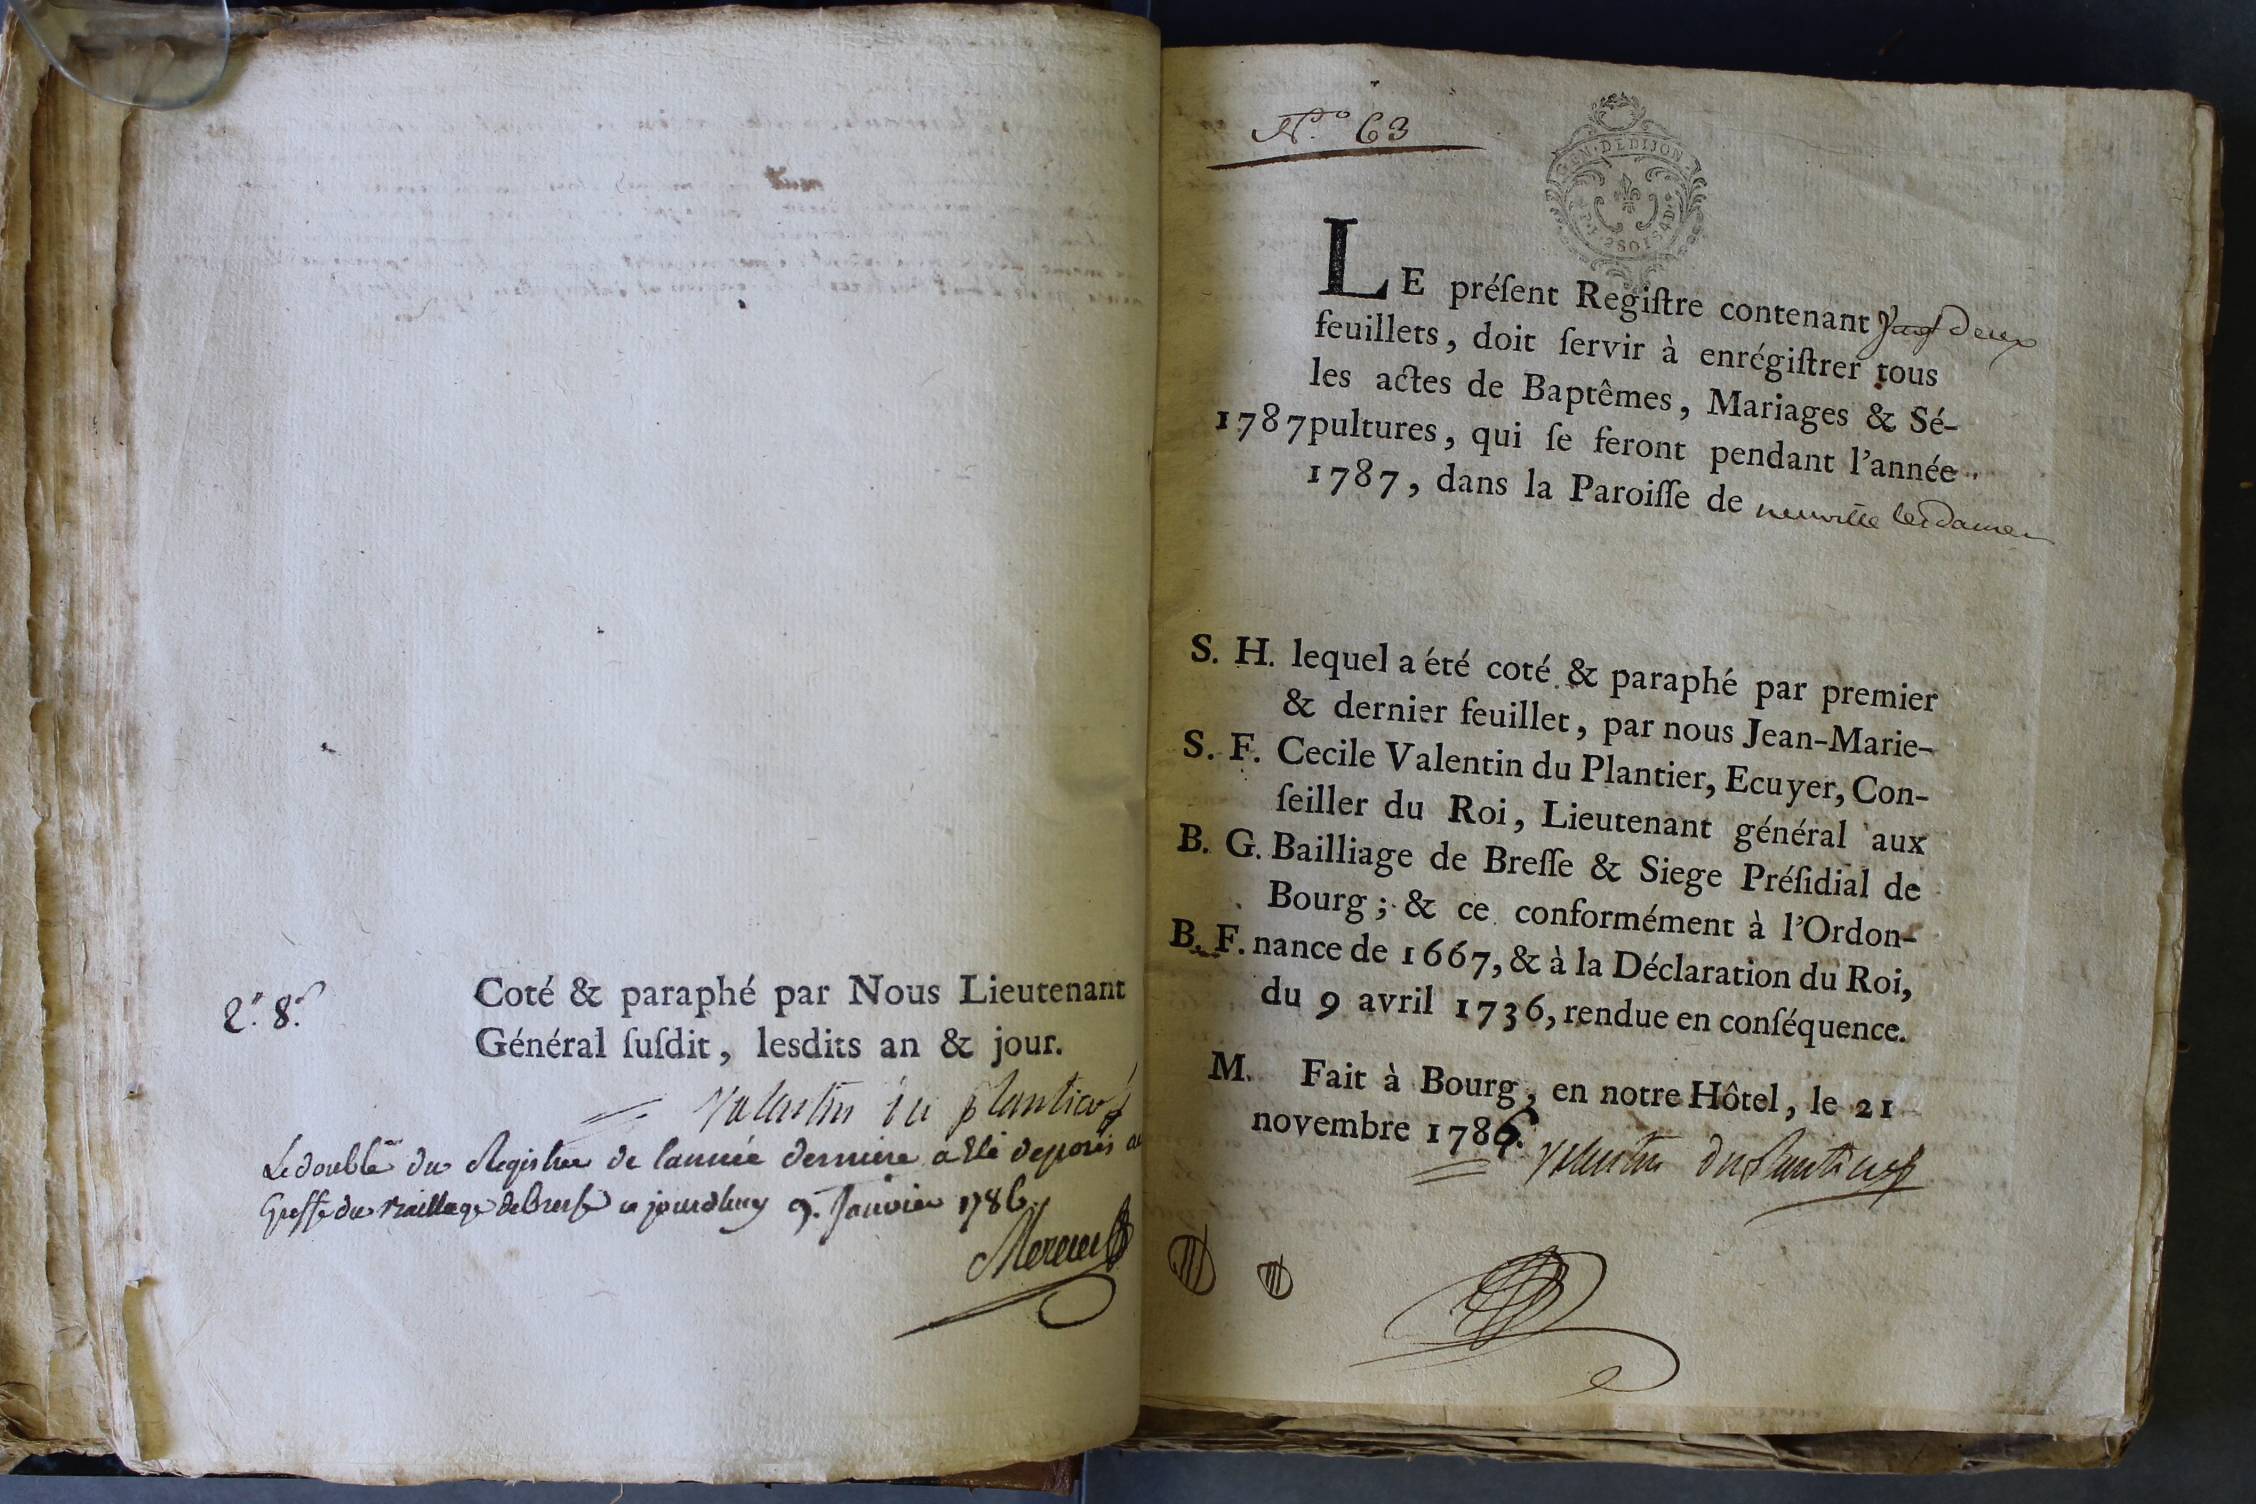 2.r 8.r
Coté & paraphé par Nous Lieutenant
Général ſuſdit, lesdits an & jour.
Valentin du plantier
Le double du Registre de lannée derniere a Eté deposés au
Greffe du Bailliage de Bresse ce jourdhuy 9. Janvier 1786
N.o 63
GEN. DE DIJON
LE préſent Regiſtre contenant deux
feuillets, doit ſervir à enrégiſtrer tous
les actes de Baptêmes, Mariages & Sé-
1787 pultures, qui ſe feront pendant l'année
1787, dans la Paroiſſe de neuville les dames
S. H. lequel a été coté & paraphé par premier
& dernier feuillet, par nous Jean-Marie-
S. F. Cecile Valentin du Plantier, Ecuyer, Con-
ſeiller du Roi, Lieutenant général aux
B. G. Bailliage de Breſſe & Siege Préſidial de
Bourg ; & ce conformément à l'Ordon-
B. F. nance de 1667, & à la Déclaration du Roi,
du 9 avril 1736, rendue en conſéquence.
M. Fait à Bourg, en notre Hôtel, le 21
novembre 1786.
Valentin du Plantier